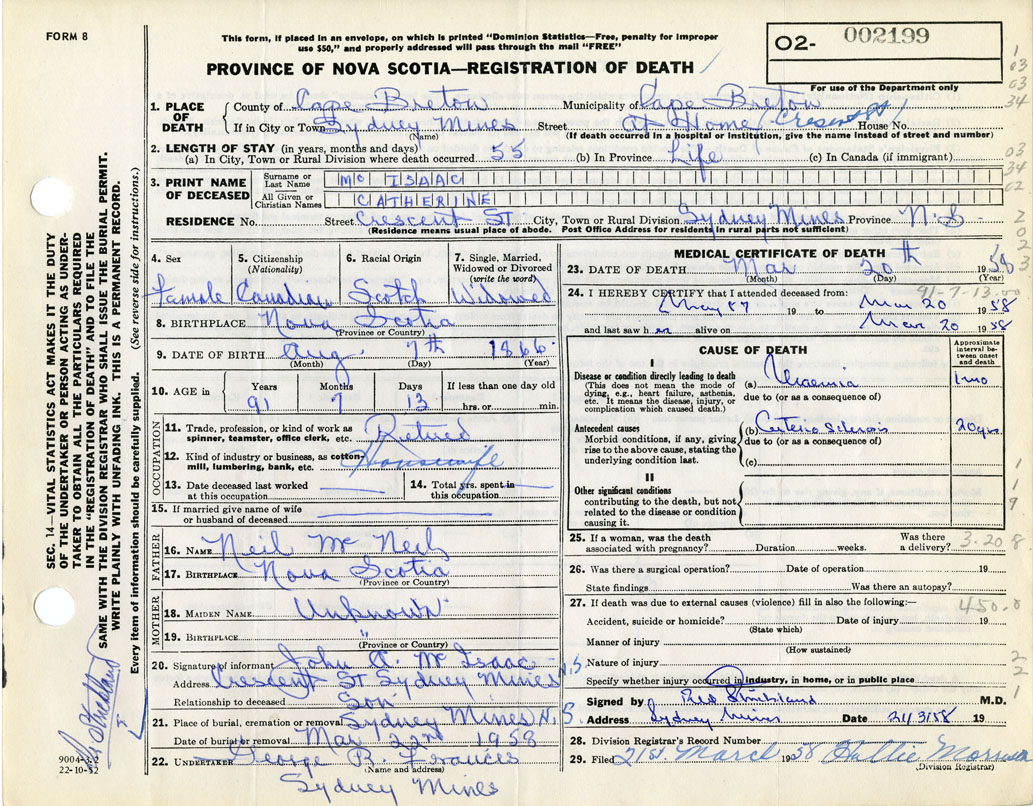 FORM 8
This form, if placed in an envelope, on which is printed "Dominion Statistics—Free, penalty for improper
use $50," and properly addressed will pass through the mail "FREE"
O2- 002199
For use of the Department only
PROVINCE OF NOVA SCOTIA—REGISTRATION OF DEATH
1. PLACE OF DEATH County of Cape Breton Municipality of Cape Breton
If in City or Town Sydney Mines Street At Home (Cresent St) House No.
(Name) (If death occurred in a hospital or institution, give the name instead of street and number)
2. LENGTH OF STAY (in years, months and days)
(a) In City, Town or Rural Division where death occurred 55 (b) In Province Life (c) In Canada (if immigrant)
3. PRINT NAME OF DECEASED
Surname or Last Name Mc ISAAC
All Given or Christian Names CATHERINE
RESIDENCE No. Street Crescent St City, Town or Rural Division Sydney Mines Province N.S
(Residence means usual place of abode. Post Office Address for residents in rural parts not sufficient)
4. Sex Female
5. Citizenship (Nationality) Canadian
6. Racial Origin Scotch
7. Single, Married, Widowed or Divorced (write the word) Widowed
8. BIRTHPLACE Nova Scotia
(Province or Country)
9. DATE OF BIRTH Aug. 7th 1866
(Month) (Day) (Year)
10. AGE in Years Months Days If less than one day old
91 7 13 hrs. or min.
OCCUPATION
11. Trade, profession or kind of work as
spinner, teamster, office clerk, etc. Retired
12. Kind of industry or business, as cotton-
mill, lumbering, bank, etc. Housewife
13. Date deceased last worked
at this occupation
14. Total yrs. spent in
this occupation
15. If married give name of wife
or husband of deceased
FATHER
16. NAME Neil Mc Neil
17. BIRTHPLACE Nova Scotia
(Province or Country)
MOTHER
18. MAIDEN NAME Unknown
19. BIRTHPLACE "
(Province or Country)
20. Signature of informant John A. Mc Isaac
Address Crescent St Sydney Mines N.S
Relationship to deceased Son
21. Place of burial, cremation or removal Sydney Mines N.S.
Date of burial or removal Mar 22nd 1958
22. UNDERTAKER George R. Frances
(Name and address)
Sydney Mines
MEDICAL CERTIFICATE OF DEATH
23. DATE OF DEATH Mar 20th 1958
(Month) (Day) (Year)
91-7-13
24. I HEREBY CERTIFY that I attended deceased from:
May 57 19 to Mar 20 1958
and last saw her alive on Mar 20 1958
CAUSE OF DEATH
Approximate interval between onset and death
I
Disease or condition directly leading to death
(This does not mean the mode of
dying, e.g., heart failure, asthenia,
etc. It means the disease, injury, or
complication which caused death.)
(a) Uraemia 1 mo
due to (or as a consequence of)
Antecedent causes
Morbid conditions, if any, giving
rise to the above cause, stating the
underlying condition last.
(b) 20 yrs
due to (or as a consequence of)
(c)
II
Other significant conditions
contributing to the death, but not
related to the disease or condition
causing it.
25. If a woman, was the death
associated with pregnancy? Duration weeks. Was there
a delivery? 3.20 8
26. Was there a surgical operation? Date of operation 19
State findings Was there an autopsy?
27. If death was due to external causes (violence) fill in also the following:—
450.0
Accident, suicide or homicide? Date of injury 19
(State which)
Manner of injury
(How sustained)
Nature of injury
Specify whether injury occurred in industry, in home, or in public place
Signed by Strickland M.D.
Address Sydney Mines Date 21/3/58 19
28. Division Registrar's Record Number
29. Filed 21st March 1958 Hattie Morrison
(Division Registrar)
SEC. 14—VITAL STATISTICS ACT MAKES IT THE DUTY
OF THE UNDERTAKER OR PERSON ACTING AS UNDER-
TAKER TO OBTAIN ALL THE PARTICULARS REQUIRED
IN THE "REGISTRATION OF DEATH" AND TO FILE THE
SAME WITH THE DIVISION REGISTRAR WHO SHALL ISSUE THE BURIAL PERMIT.
WRITE PLAINLY WITH UNFADING INK. THIS IS A PERMANENT RECORD.
Every item of information should be carefully supplied. (See reverse side for instructions.)
Strickland
9004-3-2
22-10-52
1
03
03
34
03
34
02
2
0
2
3
1
1
9
2
2
1